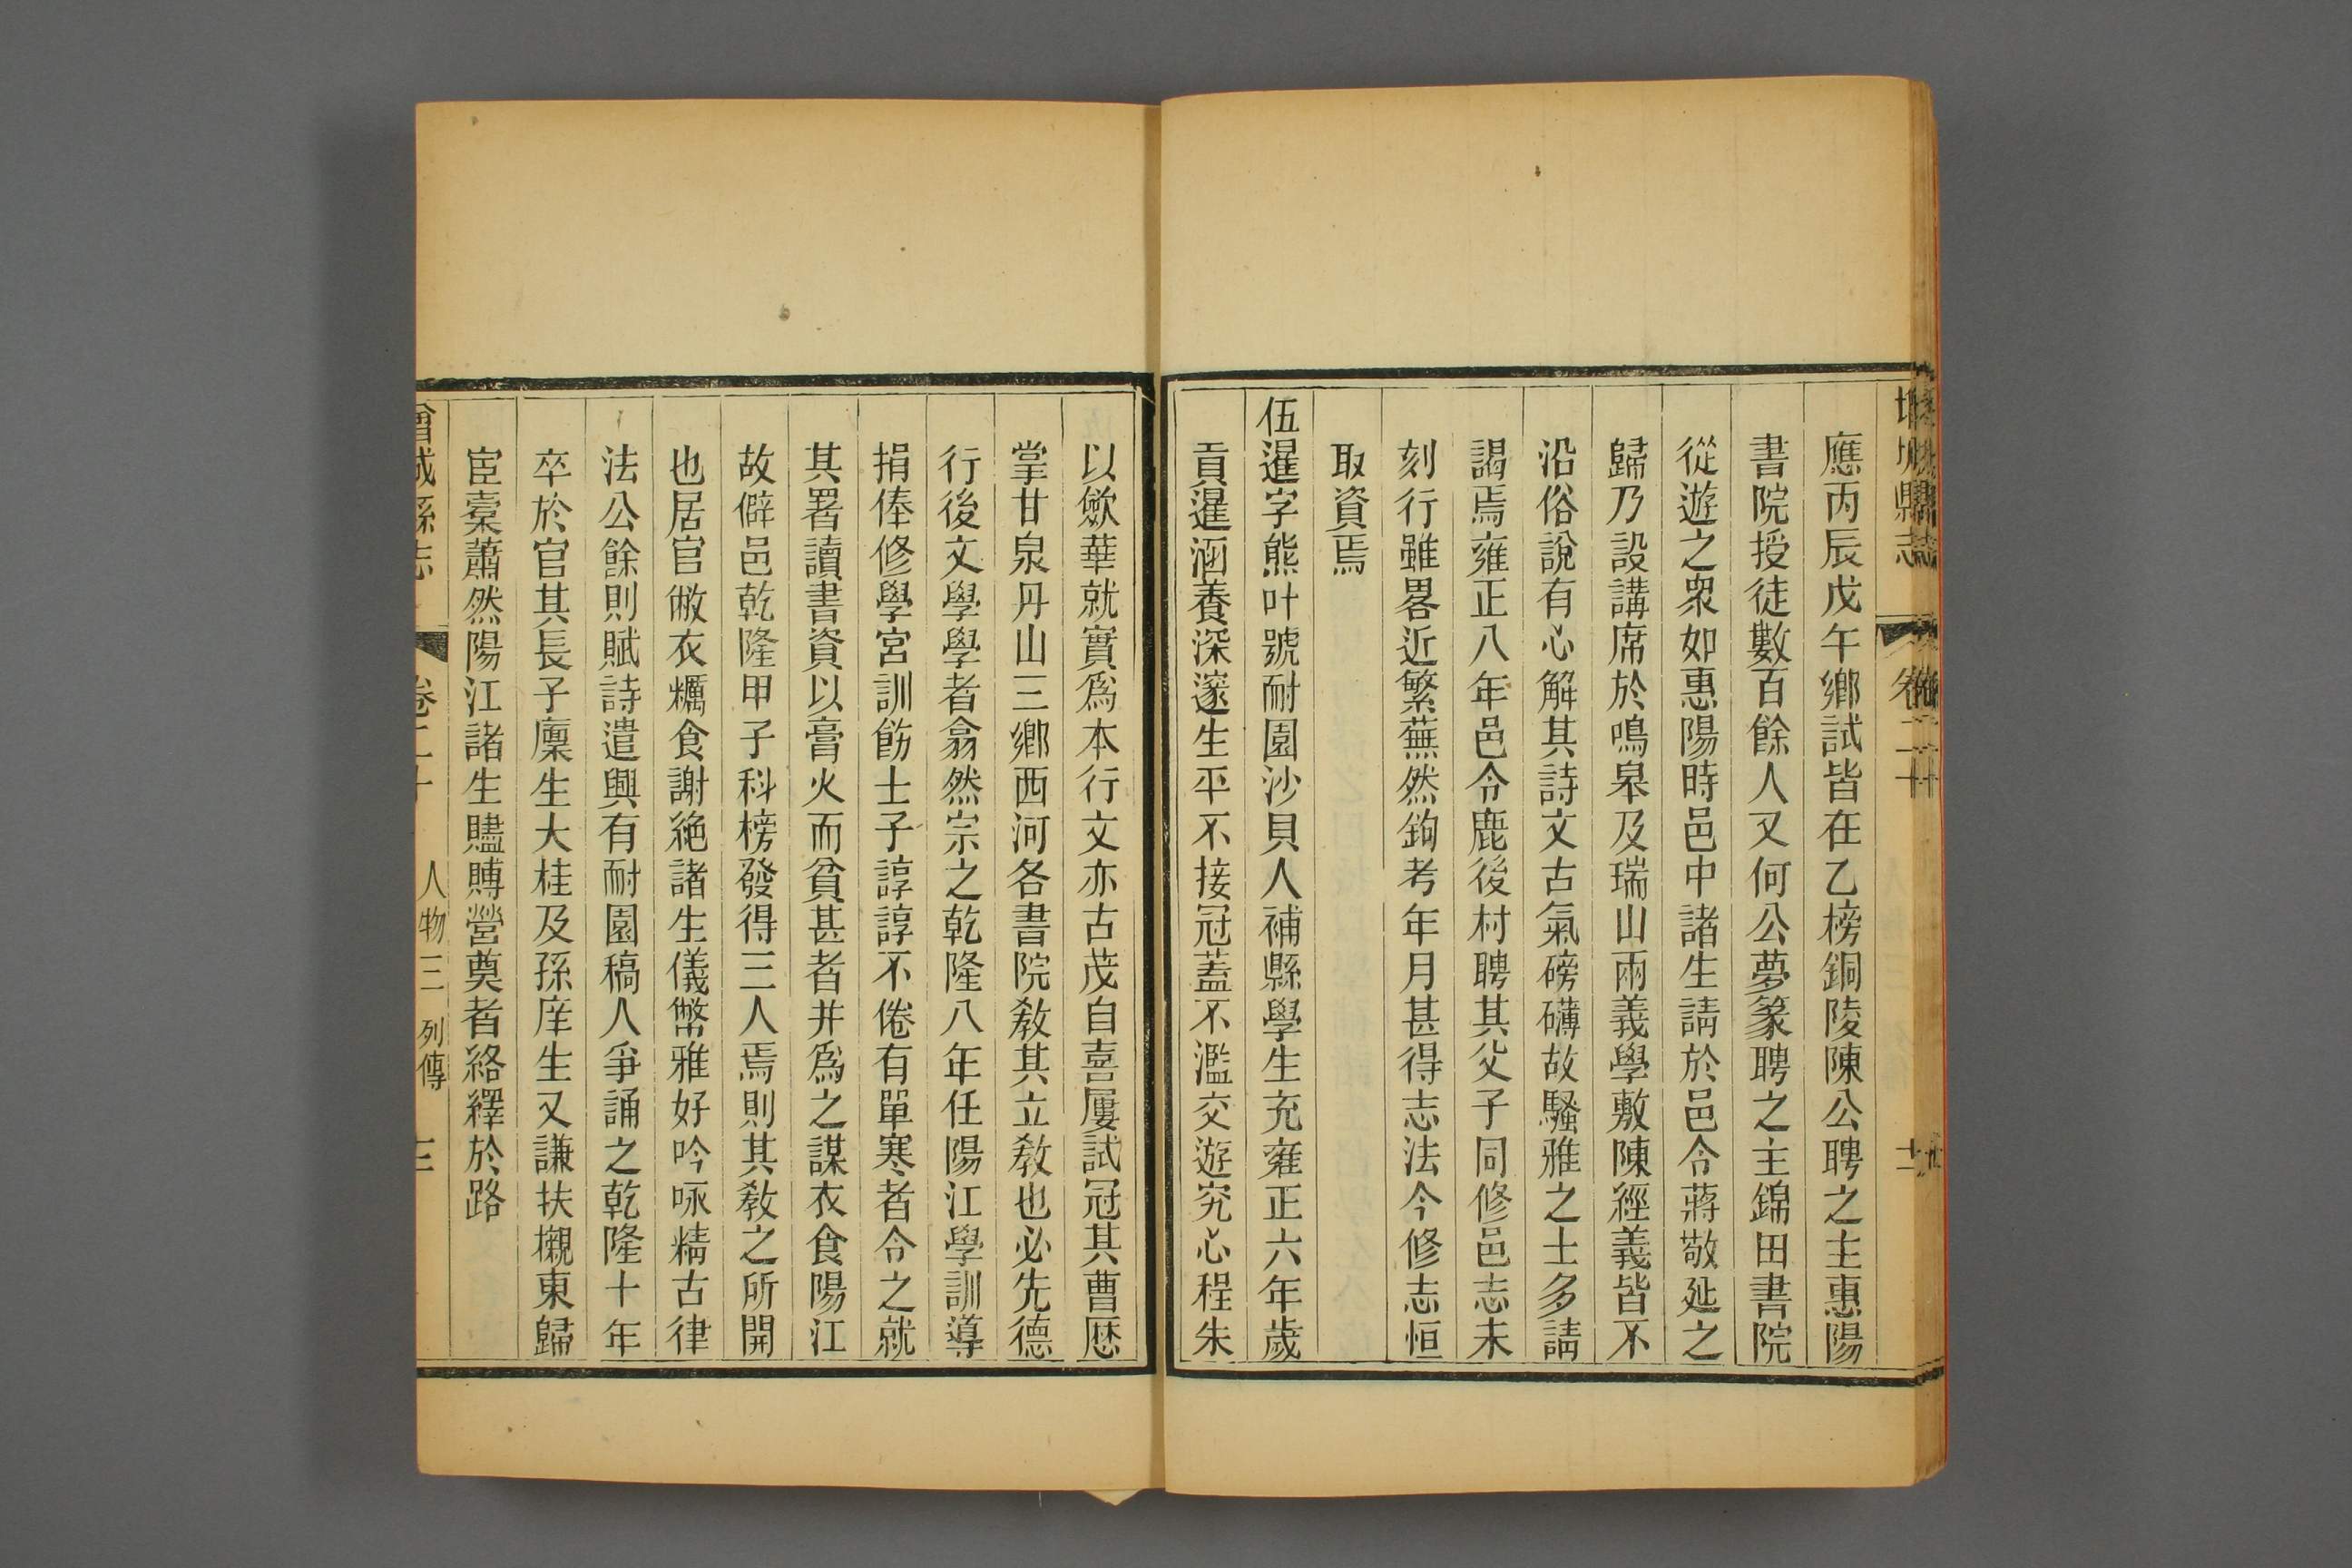 增城縣志
卷二十
應丙辰戊午鄉試皆在乙榜銅陵陳公聘之主惠陽
書院授徒數百餘人又何公夢篆聘之主錦田書院
從遊之衆如惠陽時邑中諸生請於邑令蔣敬延之
歸乃設講席於鳴皋及瑞山兩義學敷陳經義皆不
沿俗說有心解其詩文古氣磅礴故騷雅之士多請
謁焉雍正八年邑令鹿後村聘其父子同修邑志未
刻行雖畧近繁蕪然鉤考年月甚得志法今修志恒
取資焉
伍暹字熊叶號耐園沙貝人補縣學生充雍正六年歲
貢暹涵養深邃生平不接冠蓋不濫交遊究心程朱
以歛華就實爲本行文亦古茂自喜屢試冠其曹歷
掌甘泉丹山三鄉西河各書院教其立教也必先德
行後文學學者翕然宗之乾隆八年任陽江學訓導
捐俸修學宮訓飭士子諄諄不倦有單寒者令之就
其署讀書資以膏火而貧甚者并爲之謀衣食陽江
故僻邑乾隆甲子科榜發得三人焉則其教之所開
也居官敝衣糲食謝絶諸生儀幣雅好吟咏精古律
法公餘則賦詩遣興有耐園稿人爭誦之乾隆十年
卒於官其長子廩生大桂及孫庠生又謙扶櫬東歸
宦橐蕭然陽江諸生贐賻營奠者絡繹於路
增城縣志
卷二十
人物三 列傳